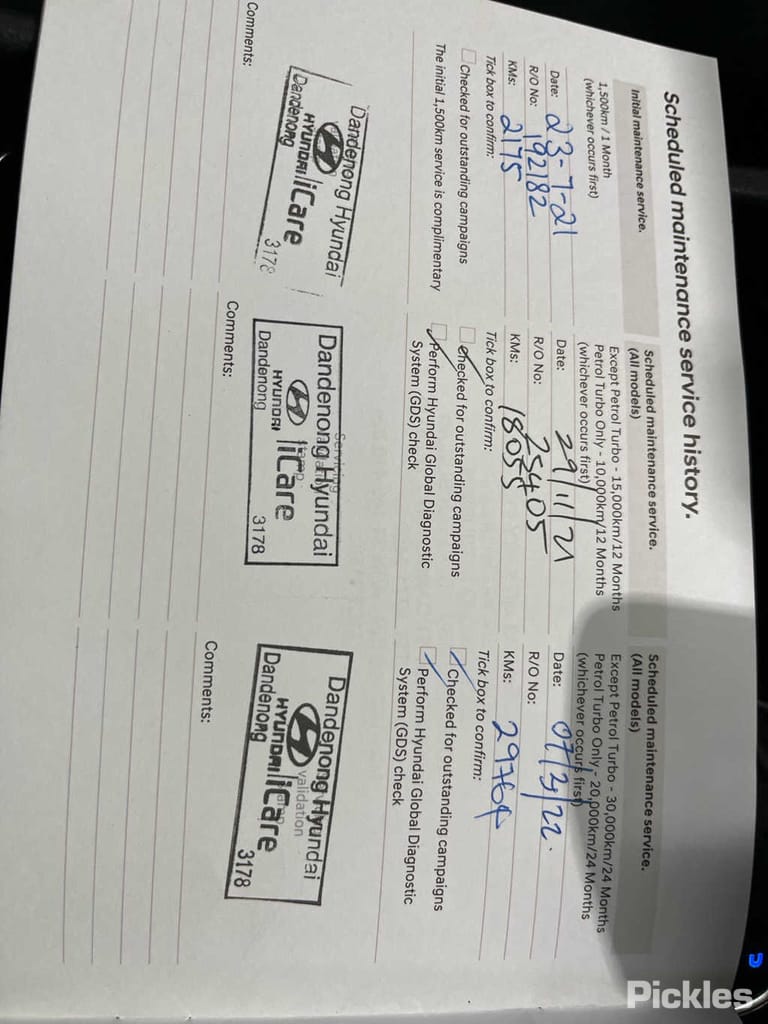 Scheduled maintenance service history.
Initial maintenance service.
1,500km / 1 Month
(whichever occurs first)
Date: 23-7-21
R/O No: 192182
KMs: 2175
Tick box to confirm:
Checked for outstanding campaigns
The initial 1,500km service is complimentary
Dandenong Hyundai
HYUNDAI iCare
Dandenong 3178
Comments:
Scheduled maintenance service.
(All models)
Except Petrol Turbo - 15,000km/12 Months
Petrol Turbo Only - 10,000km/12 Months
(whichever occurs first)
Date: 29/11/21
R/O No: 25405
KMs: 18055
Tick box to confirm:
Checked for outstanding campaigns
Perform Hyundai Global Diagnostic
System (GDS) check
Dandenong Hyundai
HYUNDAI iCare
Dandenong 3178
Comments:
Scheduled maintenance service.
(All models)
Except Petrol Turbo - 30,000km/24 Months
Petrol Turbo Only - 20,000km/24 Months
(whichever occurs first)
Date:
R/O No:
KMs: 29764
Tick box to confirm:
Checked for outstanding campaigns
Perform Hyundai Global Diagnostic
System (GDS) check
Dandenong Hyundai
validation
HYUNDAI iCare
Dandenong 3178
Comments:
Pickles